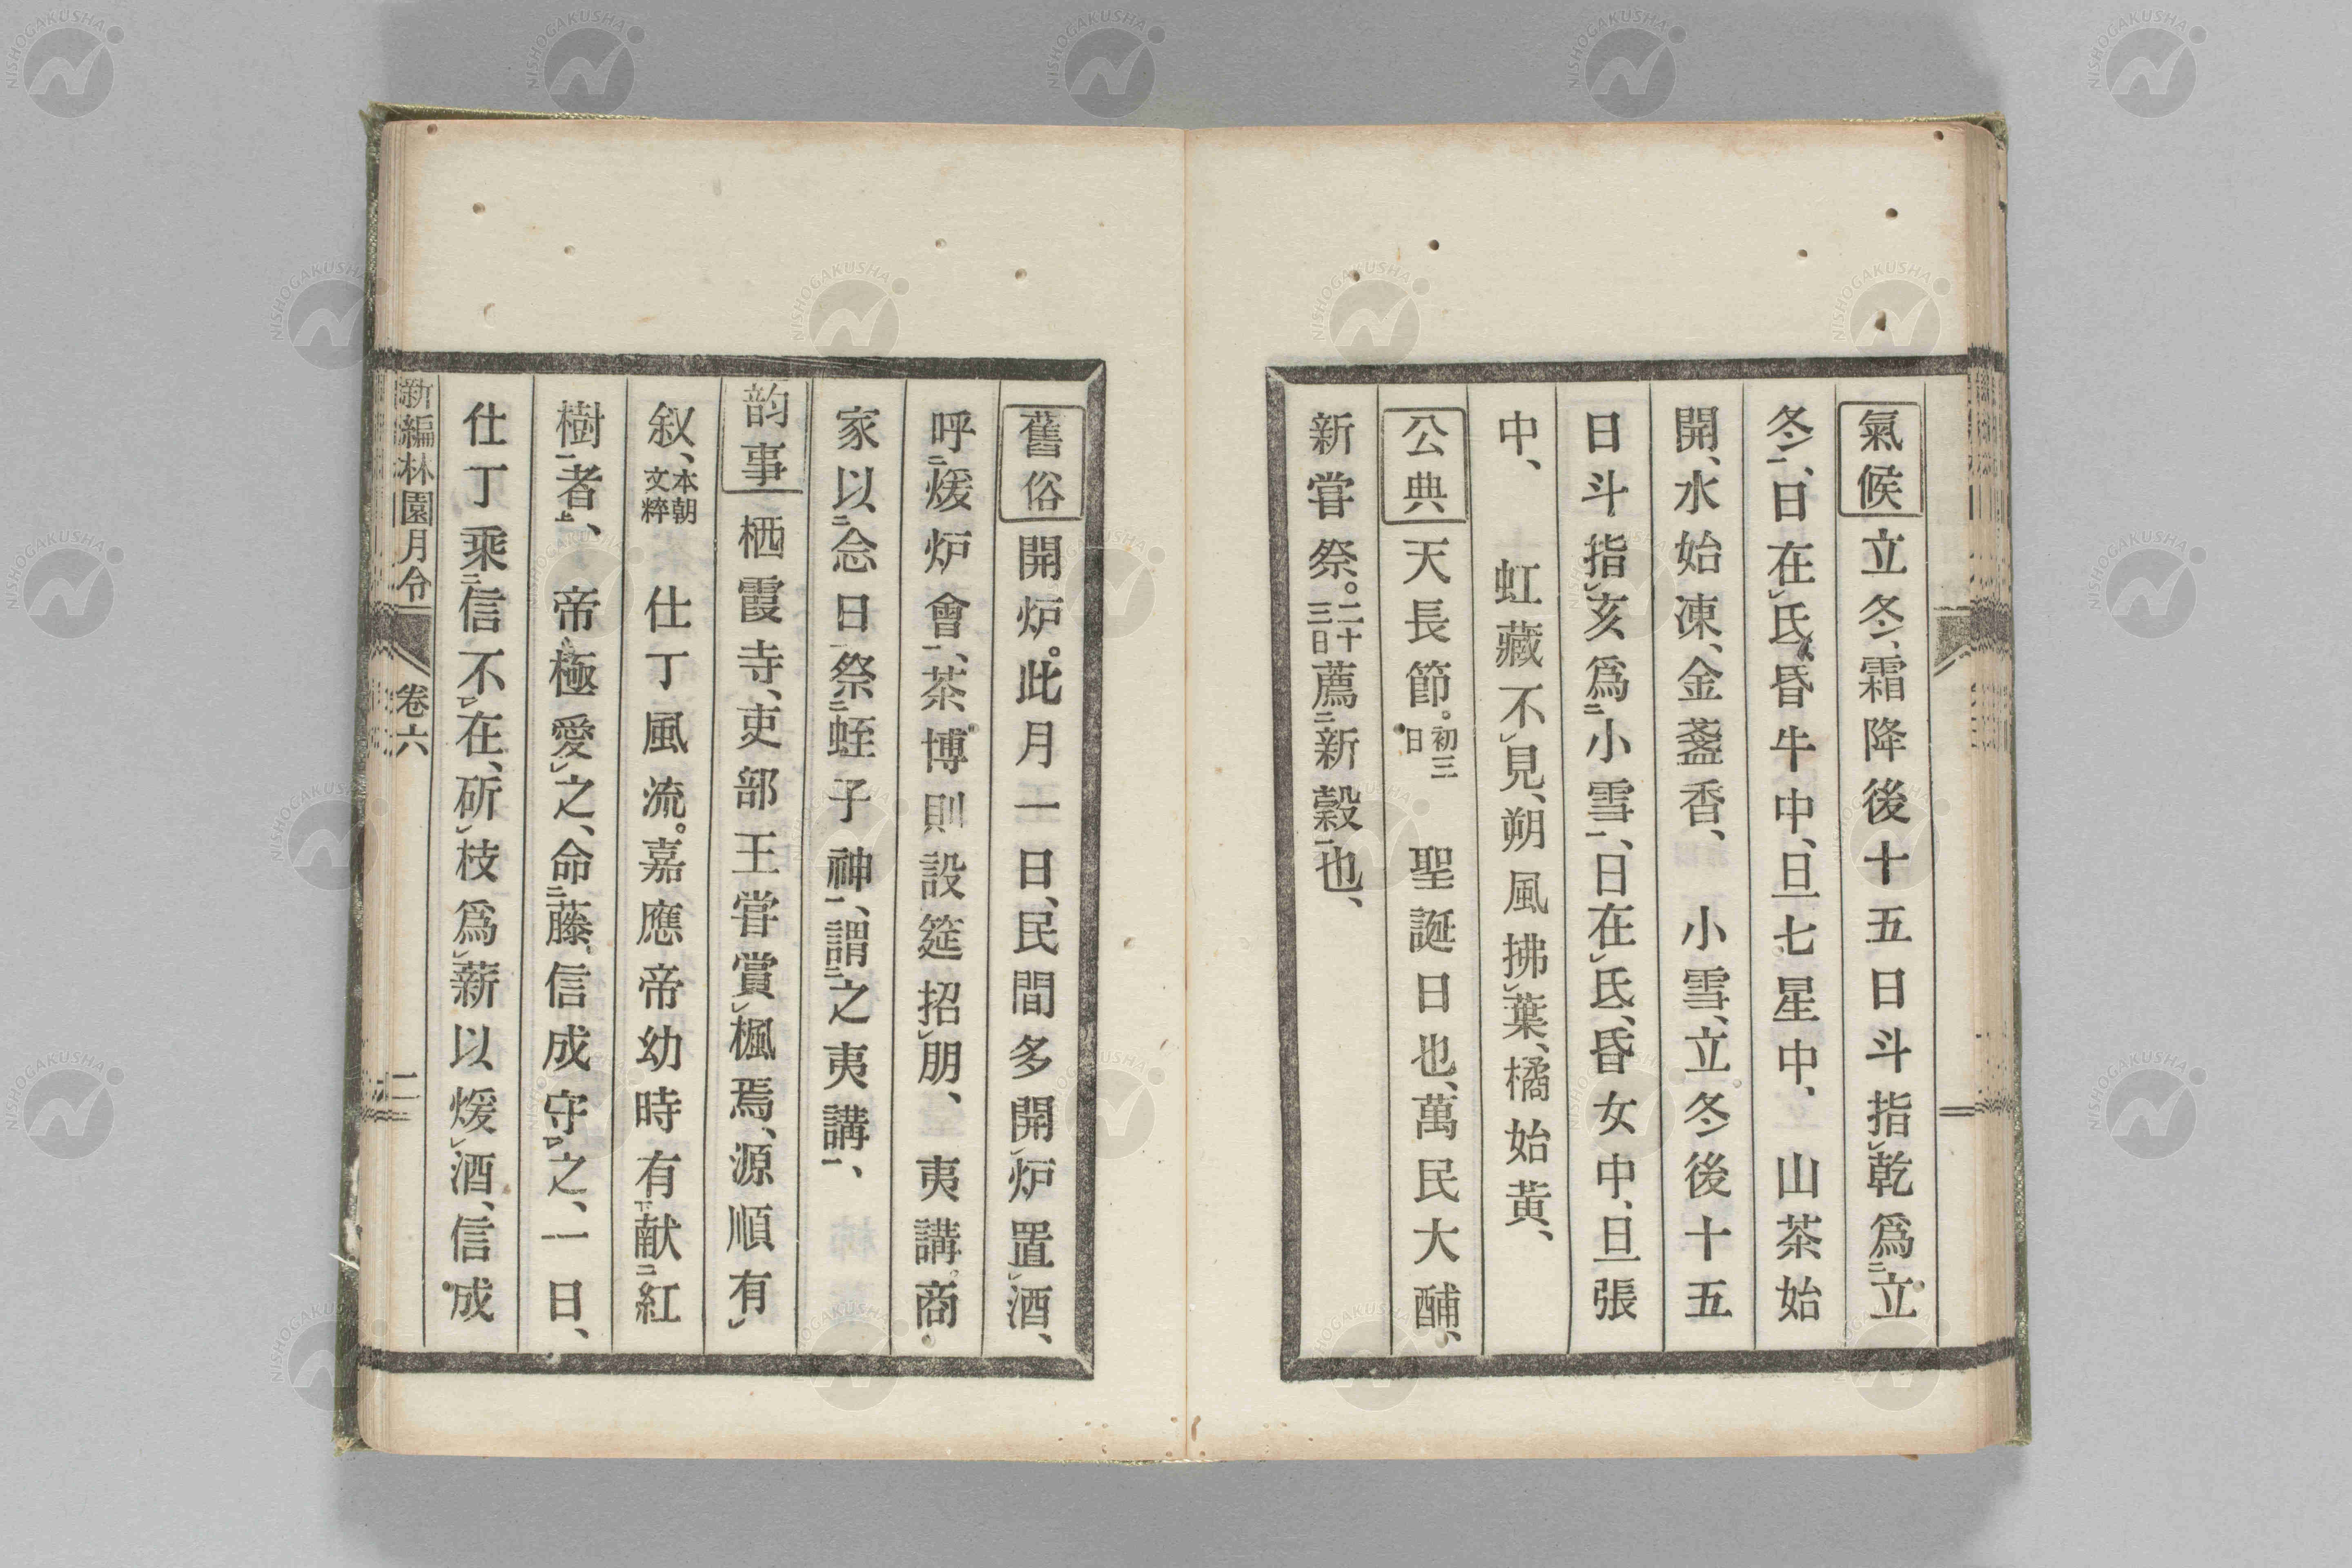 氣候立冬、霜降後十五日斗指㆑乾爲㆓立
冬㆒、日在㆑氐、昏牛中、旦七星中、　山茶始
開、水始凍、金盞香、　小雪、立冬後十五
日斗指㆑亥爲㆓小雪㆒、日在㆑氐、昏女中、旦張
中、　虹藏不㆑見、朔風拂㆑葉、橘始黃、
公典天長節。初三日　聖誕日也、萬民大酺、
新嘗祭。二十三日薦㆓新穀㆒也、
舊俗開炉。此月一日、民間多開㆑炉置㆑酒、
呼㆓煖炉會㆒、茶博則設筵招㆑朋、　夷講。商
家以㆓念日㆒祭㆓蛭子神㆒、謂㆓之夷講㆒、
韵事栖霞寺、吏部王嘗賞㆑楓焉、源順有㆑
叙、本朝文粹　仕丁風流。嘉應帝幼時有㆘献㆓紅
樹㆒者㆖、帝極愛㆑之、命㆓藤信成守㆒㆑之、一日、
仕丁乘㆓信不㆒㆑在、斫㆑枝爲㆑薪以煖㆑酒、信成
新編林園月令　卷六　二
NISHOGAKUSHA